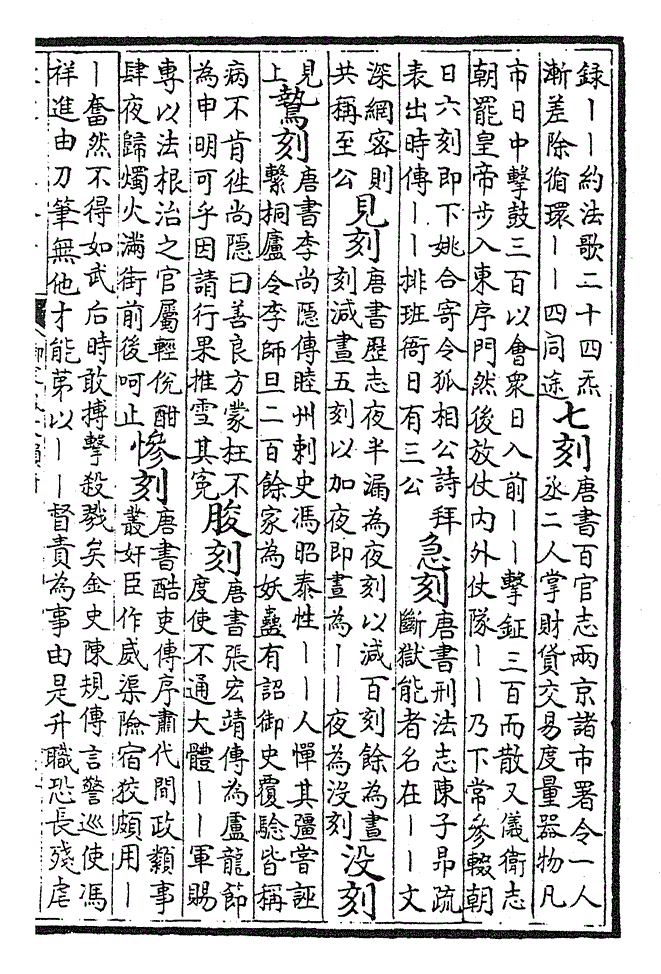 録丨丨約法歌二十四炁
漸差除循環丨丨四同途
七刻
唐書百官志兩京諸市署令一人
丞二人掌財貨交易度量器物凡
市日中擊鼓三百以會衆日入前丨丨擊鉦三百而散又儀衛志
朝罷皇帝步入東序門然後放仗内外仗隊丨丨乃下常參輟朝
日六刻即下姚合寄令狐相公詩拜
表出時傳丨丨排班衙日有三公
急刻
唐書刑法志陳子昻疏
斷獄能者名在丨丨文
深網密則
共稱至公
見刻
唐書歷志夜半漏為夜刻以減百刻餘為晝
刻減晝五刻以加夜即晝為丨丨夜為没刻
没刻
見
上
鷙刻
唐書李尚隱傳睦州刺史馮昭泰性丨丨人憚其彊嘗誣
繫桐廬令李師旦二百餘家為妖蠱有詔御史覆驗皆稱
病不肯徃尚隠曰善良方蒙枉不
為申明可乎因請行果推雪其寃
朘刻
唐書張宏靖傳為盧龍節
度使不通大體丨丨軍賜
專以法根治之官屬輕侻酣
肆夜歸燭火滿街前後呵止
慘刻
唐書酷吏傳序肅代間政類事
叢奸臣作威渠險宿狡頗用丨
丨奮然不得如武后時敢搏擊殺戮矣金史陳規傳言警巡使馮
祥進由刀筆無他才能苐以丨丨督責為事由是升職恐長殘虐